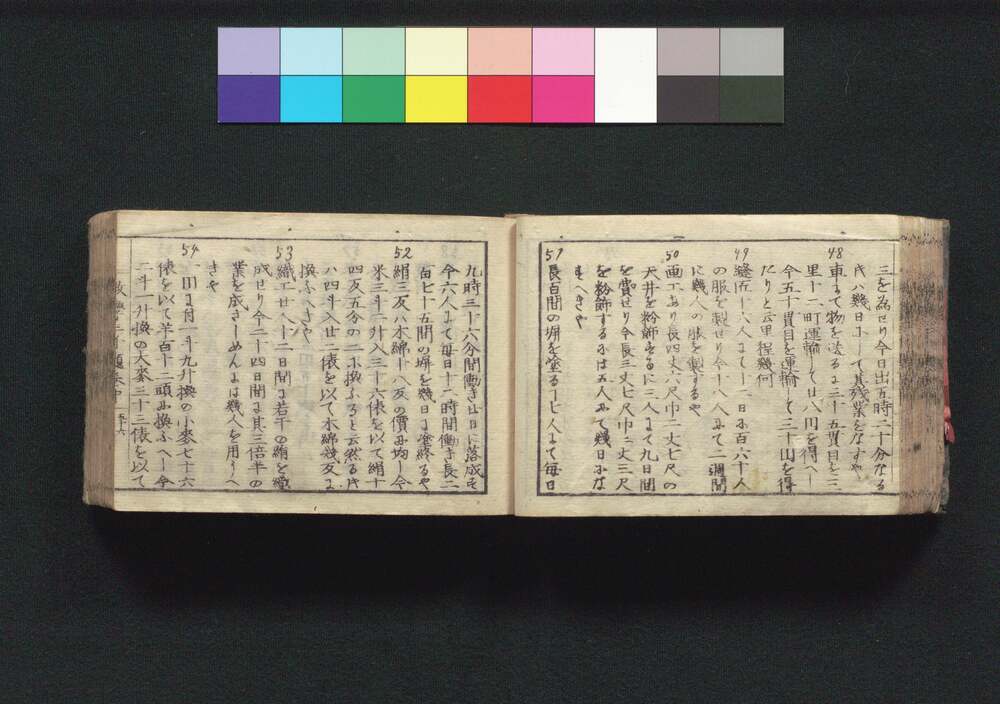 三を為せり今日出五時二十分なる
時ハ幾日にて其残業をなすや
48
車にて物を送るに三十五貫目を三
里十二町運輸して廿八円を得へし
今五十貫目を運輸して三十円を得
たりと云里程幾何
49
縫匠十六人にて十二日に百六十人
の服を製せり今十八人にて二週間
に幾人の服を製するや
50
画工あり長四丈六尺巾二丈七尺の
天井を粉飾するに三人にて九日間
を費せり今長三丈七尺巾二丈三尺
を粉飾するにハ五人にて幾日にな
すへきや
51
長百間の塀を塗る十七人にて毎日
九時三十六分間働き廿日に落成す
今六人にて毎日十二時間働き長二
百七十五間の塀を幾日に塗終るや
52
絹三反ハ木綿十八反の價に均し今
米三斗二升入三十六俵を以て絹十
四反五分の二に換ふると云然る時
ハ四斗入廿二俵を以て木綿幾反に
換ふへきや
53
織工廿八人十二日間に若干の絹を織
成せり今二十四日間に其三倍半の
業を成さしめんにハ幾人を用うへ
きや
54
一円に付一斗九升換の小麥七十六
俵を以て羊百十二頭に換ふへし今
二斗一升換の大麥三十三俵を以て